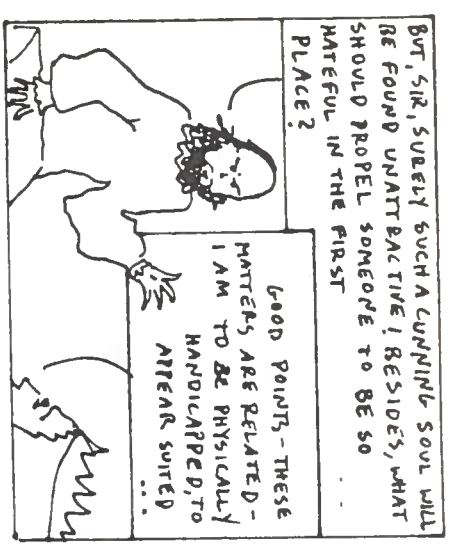 BUT, SIR, SURELY SUCH A CUNNING SOUL WILL
BE FOUND UNATTRACTIVE! BESIDES, WHAT
SHOULD PROPEL SOMEONE TO BE SO
HATEFUL IN THE FIRST
PLACE?
GOOD POINTS - THESE
MATTERS ARE RELATED -
I AM TO BE PHYSICALLY
HANDICAPPED, TO
APPEAR SUITED
...